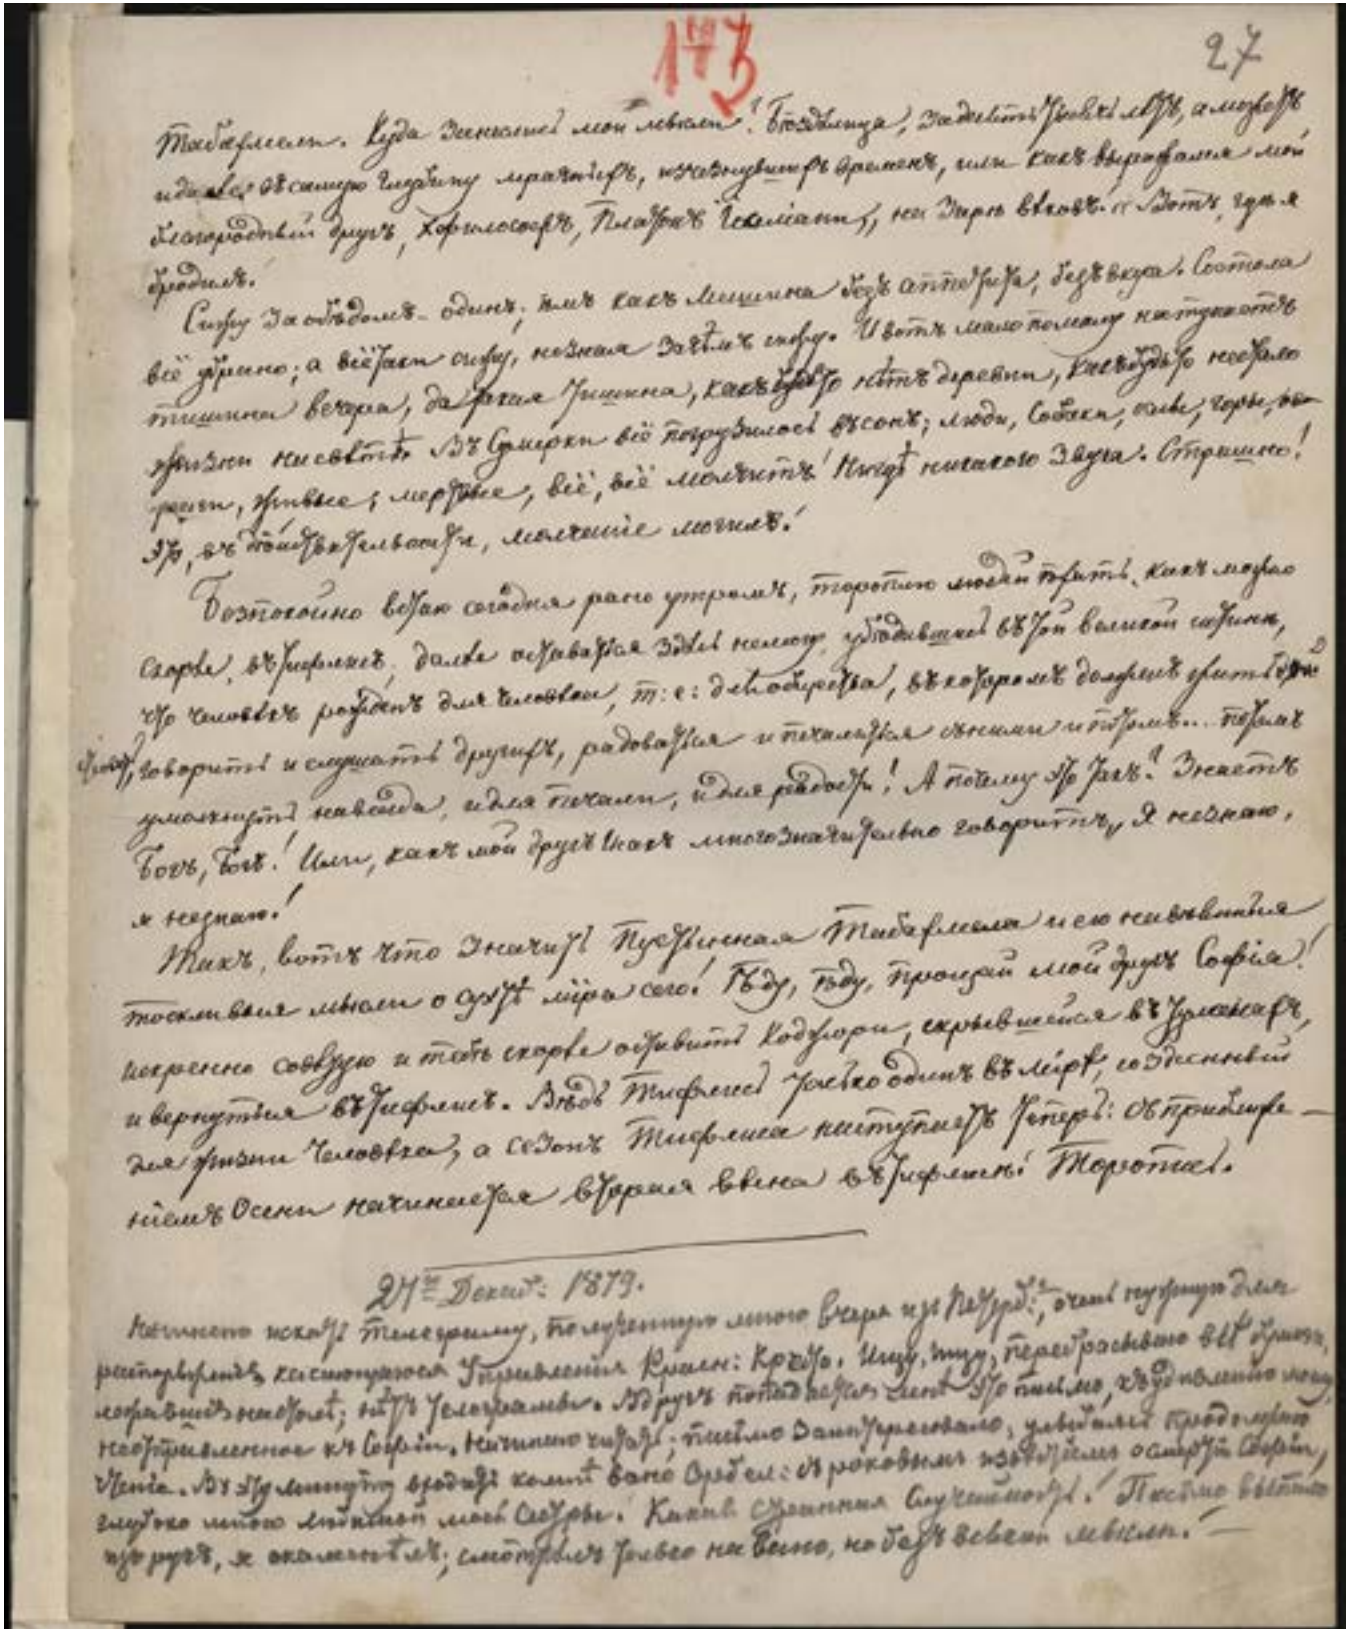 173
27
Табахмели. Куда занеслись мои мысли! Бездѣлица, за десять тысячъ лѣтъ, а можетъ
и далѣе, въ самую глубину мрачныхъ, изчезнувшихъ временъ, или какъ выражался мой
благородный другъ, философъ, Платонъ Іоселіани, на зарѣ вѣковъ. Вотъ, гдѣ я
бродилъ.
Сижу за обѣдомъ одинъ; ѣмъ какъ машина безъ аппетита, безъ вкуса. Со стола
всё убрано; а всё таки сижу, не зная зачѣмъ сижу. И вотъ мало помалу наступаетъ
тишина вечера, да такая тишина, какъ будто нѣтъ деревни, какъ будто не стало
жизни на свѣтѣ. Въ сумерки всё погрузилось въ сонъ; люди, собаки, горы,
живые, мертвые, всё, всё молчитъ! Нигдѣ никакого звука. Страшно!
Это, въ дѣйствительности, молчаніе могилъ!
Безпокойно встаю сегодня рано утромъ, тороплю людей ѣхать, какъ можно
скорѣе, въ Тифлисъ; далѣе оставаться здѣсь не могу, убѣдившись въ той великой истинѣ,
что человѣкъ рожденъ для человѣка, т: е: для общества, въ которомъ долженъ жить
говорить и слушать другихъ, радоваться и печалиться съ ними и потомъ... потомъ
умолкнуть навсегда, и для печали, и для радости! А почему это такъ? Знаетъ
Богъ, Богъ! Или, какъ мой другъ Исакъ многозначительно говоритъ, Я не знаю,
я не знаю!
Такъ, вотъ что значитъ пустынная Табахмела и ею навѣянныя
тоскливыя мысли о суетѣ міра сего! Ѣду, ѣду, прощай мой другъ Софія!
искренно совѣтую и тебѣ скорѣе оставить Коджори, скрывшейся въ туманахъ,
и вернуться въ Тифлисъ. Вѣдь Тифлисъ только одинъ въ мірѣ, созданный
для жизни человѣка, а сезонъ Тифлиса наступаетъ теперь: съ приближе-
ніемъ Осени начинается вторая весна въ Тифлисѣ! Торопись.
24го Декаб: 1879.
Начинаю искать телеграмму, полученную мною вчера изъ Петерб:, очень нужную для
касающагося Управленія Крест: Ищу, ищу, перебрасываю всѣ бумаги,
лежавшіе на столѣ; нѣтъ телеграммы. Вдругъ попадается мнѣ это письмо, къ удивленію моему,
неотправленное къ Софіи. Начинаю читать; письмо заинтересовало, улыбаясь продолжаю
чтеніе. Въ эту минуту входитъ ко мнѣ Вано Орбел: съ роковымъ извѣстіемъ о смерти Софіи,
глубоко мною любимой моей Сестры! Какая странная случайность! Письмо выпало
изъ рукъ, я окаменѣлъ; смотрѣлъ только на Вано, но безъ всякой мысли!